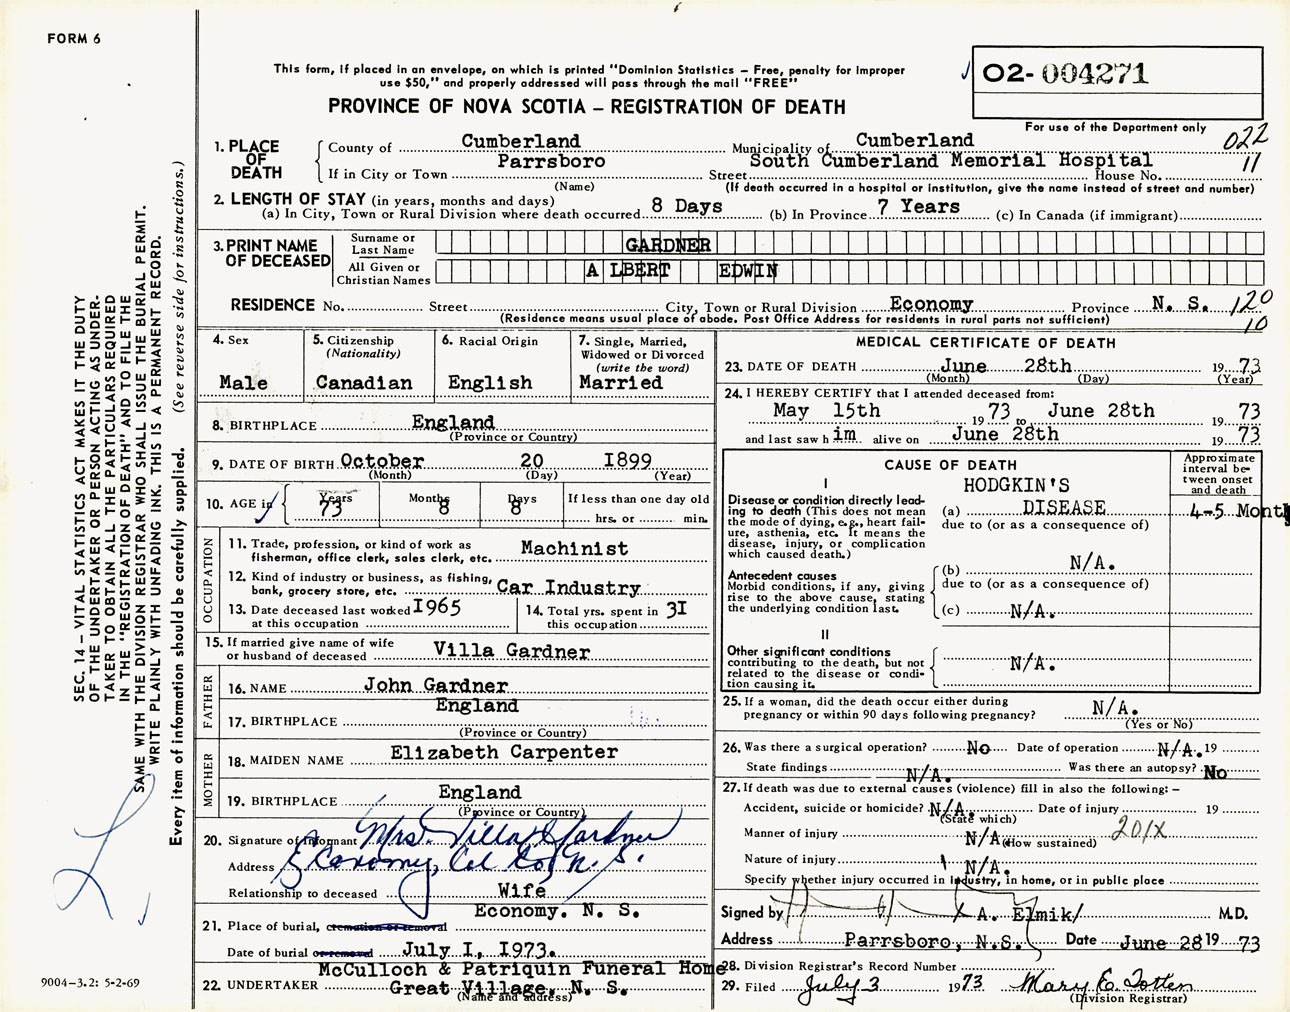 FORM 6
This form, if placed in an envelope, on which is printed "Dominion Statistics – Free, penalty for improper
use $50," and properly addressed will pass through the mail "FREE"
PROVINCE OF NOVA SCOTIA – REGISTRATION OF DEATH
02-004271
For use of the Department only
022
11
1. PLACE OF DEATH
County of Cumberland Municipality of Cumberland
If in City or Town Parrsboro Street South Cumberland Memorial Hospital House No.
(Name) (If death occurred in a hospital or institution, give the name instead of street and number)
2. LENGTH OF STAY (in years, months and days)
(a) In City, Town or Rural Division where death occurred 8 Days (b) In Province 7 Years (c) In Canada (if immigrant)
3. PRINT NAME OF DECEASED
Surname or Last Name GARDNER
All Given or Christian Names ALBERT EDWIN
RESIDENCE No. Street City, Town or Rural Division Economy Province N. S. 120
(Residence means usual place of abode. Post Office Address for residents in rural parts not sufficient) 10
4. Sex
Male
5. Citizenship
(Nationality)
Canadian
6. Racial Origin
English
7. Single, Married,
Widowed or Divorced
(write the word)
Married
8. BIRTHPLACE England
(Province or Country)
9. DATE OF BIRTH October 20 I899
(Month) (Day) (Year)
10. AGE in Years 73 Months 8 Days 8 If less than one day old
hrs. or min.
OCCUPATION
11. Trade, profession, or kind of work as
fisherman, office clerk, sales clerk, etc. Machinist
12. Kind of industry or business, as fishing,
bank, grocery store, etc. Car Industry
13. Date deceased last worked
at this occupation I965
14. Total yrs. spent in
this occupation 3I
15. If married give name of wife
or husband of deceased Villa Gardner
FATHER
16. NAME John Gardner
17. BIRTHPLACE England
(Province or Country)
MOTHER
18. MAIDEN NAME Elizabeth Carpenter
19. BIRTHPLACE England
(Province or Country)
20. Signature of Informant Mrs. Villa Gardner
Address Economy, Col Co, N. S.
Relationship to deceased Wife
21. Place of burial, cremation or removal Economy. N. S.
Date of burial or removal July I, I973.
22. UNDERTAKER McCulloch & Patriquin Funeral Home
Great Village, N. S.
(Name and address)
MEDICAL CERTIFICATE OF DEATH
23. DATE OF DEATH June 28th 19 73
(Month) (Day) (Year)
24. I HEREBY CERTIFY that I attended deceased from:
May 15th 19 73 to June 28th 19 73
and last saw h im alive on June 28th 19 73
CAUSE OF DEATH
Approximate
interval be-
tween onset
and death
I
Disease or condition directly lead-
ing to death (This does not mean
the mode of dying, e.g., heart fail-
ure, asthenia, etc. It means the
disease, injury, or complication
which caused death.)
HODGKIN'S
(a) DISEASE 4-5 Month
due to (or as a consequence of)
Antecedent causes
Morbid conditions, if any, giving
rise to the above cause, stating
the underlying condition last.
(b) N/A.
due to (or as a consequence of)
(c) N/A.
II
Other significant conditions
contributing to the death, but not
related to the disease or condi-
tion causing it.
N/A.
25. If a woman, did the death occur either during
pregnancy or within 90 days following pregnancy? N/A.
(Yes or No)
26. Was there a surgical operation? No Date of operation N/A. 19
State findings N/A. Was there an autopsy? No
27. If death was due to external causes (violence) fill in also the following: –
Accident, suicide or homicide? N/A. Date of injury 19
(State which)
Manner of injury N/A. (How sustained) 201X
Nature of injury N/A.
Specify whether injury occurred in industry, in home, or in public place
Signed by A. Elmik/ M.D.
Address Parrsboro, N.S. Date June 28 19 73
28. Division Registrar's Record Number
29. Filed July 3 1973 Mary E. Totten
(Division Registrar)
SEC. 14 – VITAL STATISTICS ACT MAKES IT THE DUTY
OF THE UNDERTAKER OR PERSON ACTING AS UNDER-
TAKER TO OBTAIN ALL THE PARTICULARS REQUIRED
IN THE "REGISTRATION OF DEATH" AND TO FILE THE
SAME WITH THE DIVISION REGISTRAR WHO SHALL ISSUE THE BURIAL PERMIT.
WRITE PLAINLY WITH UNFADING INK. THIS IS A PERMANENT RECORD.
Every item of information should be carefully supplied. (See reverse side for instructions.)
9004-3.2: 5-2-69